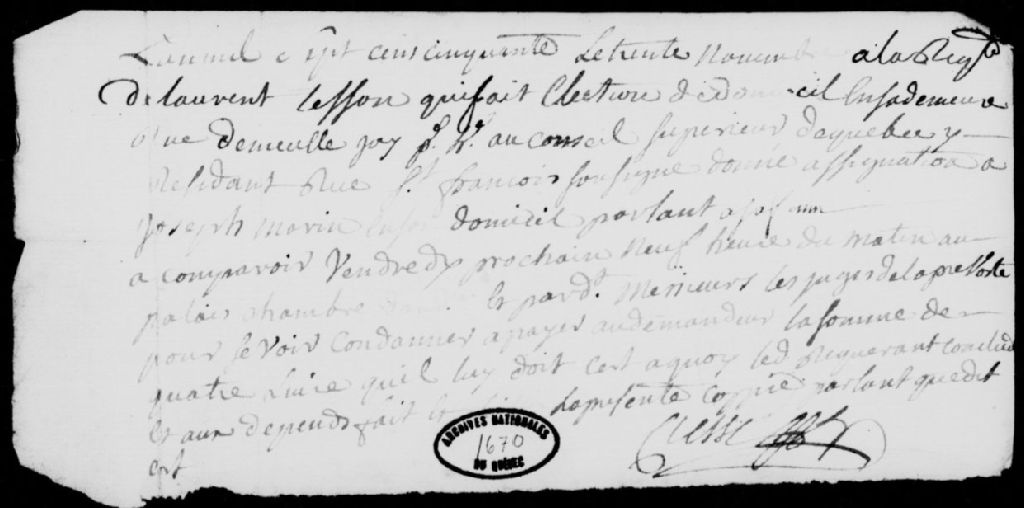 Lan mil sept cens cinquante Le trente Novembre a la Reqte
De laurent Lesson qui fait Election de domicil En sa demeure
Rue demeulle jay h. Rt. au conseil superieur de quebec y
Residant Rue St. francois sousigné donné assignation a
Joseph Morin En son domicil parlant a sa fame
a comparoir Vendredy prochain neuf heure du matin au
palais chambre d'au. Et pard. Messieurs Les juges de la prevosté
pour se Voir Condanner a payer au demandeur la somme de
quatre Livre quil luy doit Cest a quoy led Requerant conclud
Et aux depends fait Et Laissé La presente coppie parlant que dit
est
Clesse
ARCHIVES NATIONALES
1670
DU QUÉBEC